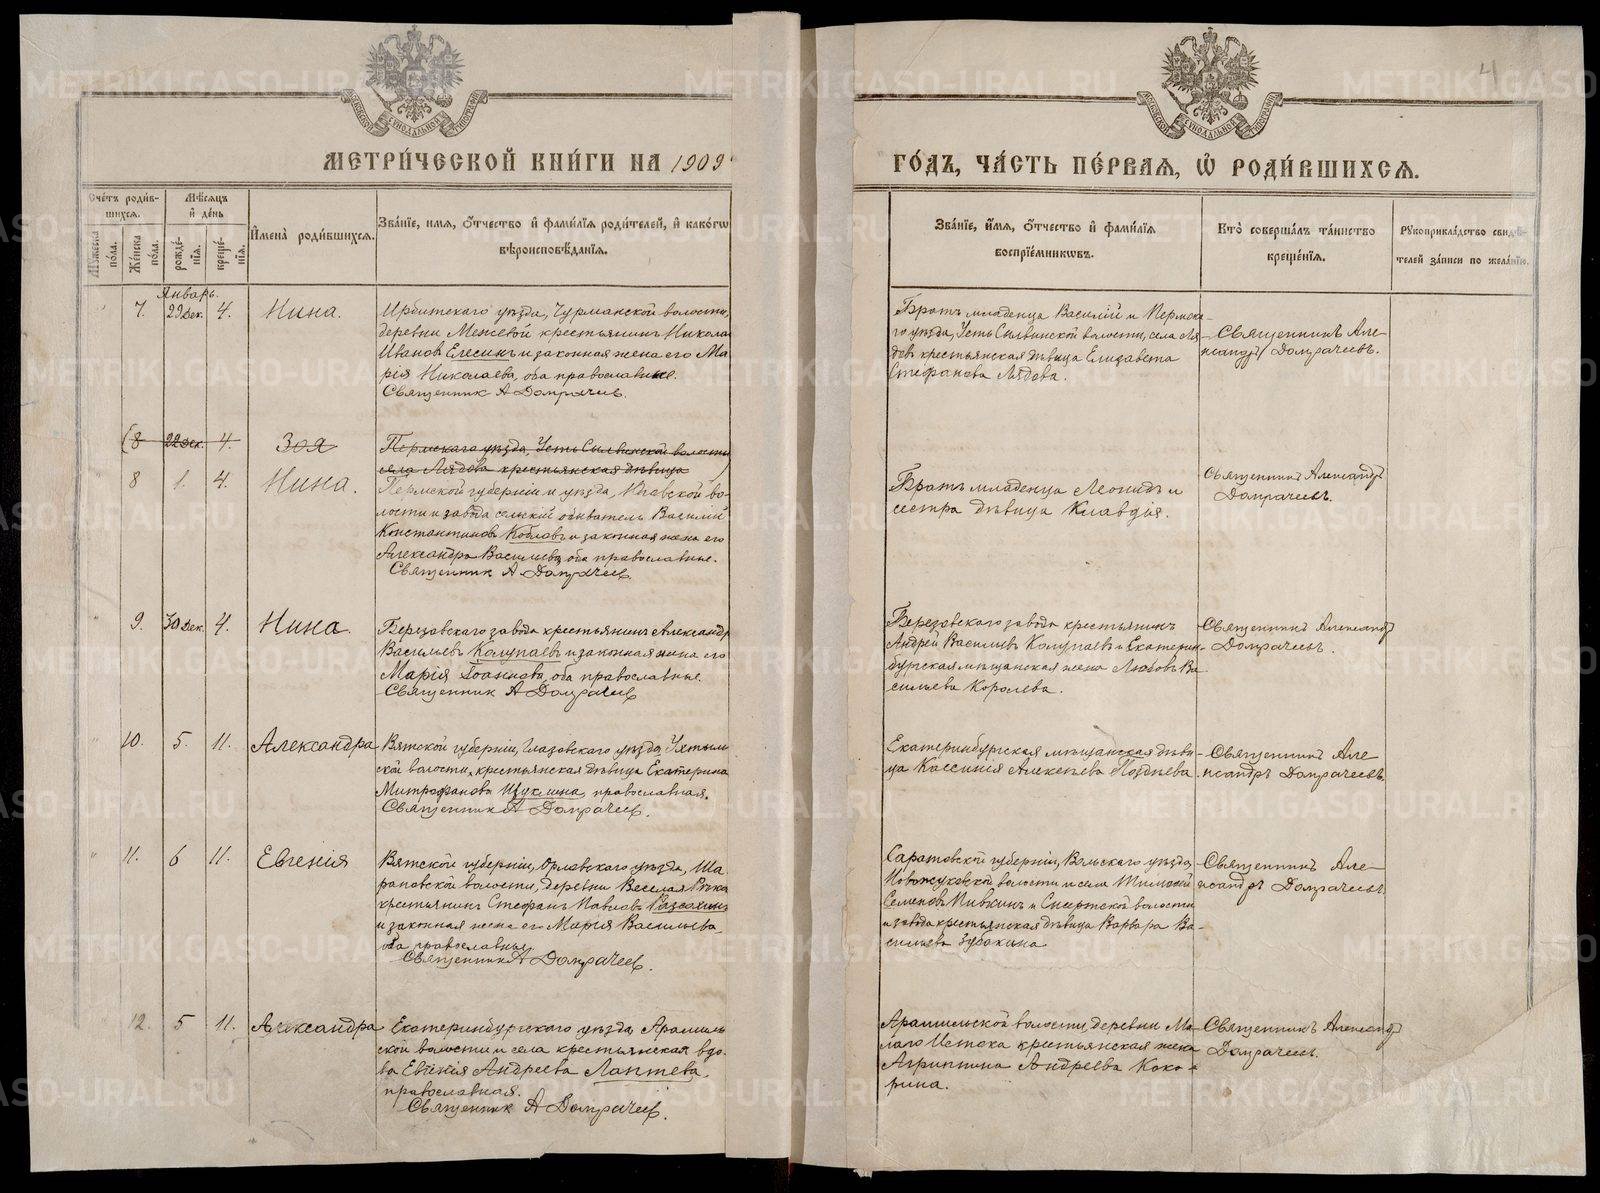 МЕТРИ́ЧЕСКОЙ КНИ́ГИ НА 1909
ГО́ДЪ, ЧА́СТЬ ПЕ́РВАЯ, Ѡ҆ РОДИ́ВШИХСЯ.
Сче́тъ роди́в-
шихся.
Мѣ́сяцъ
и҆ де́нь
Мужеска
по́ла.
Же́нска
по́ла.
рожде́-
нія.
креще́-
нія.
И҆мена̀ роди́вшихся.
Зва́ніе, и́мя, ѻ҆́тчество и҆ фами́лія роди́телей, и҆ како́гѡ
вѣроисповѣ́данія.
Зва́ніе, и҆́мя, ѻ҆́тчество и҆ фами́лія
воспріе́мниковъ.
Кто̀ соверша́лъ та́инство
креще́нія.
Рукоприкла́дство свидѣ́-
телей за́писи по жела́нію.
4
Январь.
7. 29 Дек. 4. Нина.
Ирбитскаго уѣзда, Чурманской волости,
деревни Меньевой крестьянинъ Никола
Ивановъ Елесинъ и законная жена его Ма-
рія Николаева, оба православные.
Священник А Домрачев.
Братъ младенца Василій и Пермска-
го уѣзда, Усть Сылвинской волости, села Ля-
довъ крестьянская дѣвица Елизавета
Стефанова Лядова.
Священникъ Але-
ксандръ Домрачевъ.
(8 22 Дек. 4. Зоя
Пермскаго уѣзда, Усть Сылвинской волости
села Лядова крестьянская дѣвица )
8 1. 4. Нина.
Пермской губерніи и уѣзда, во-
лости и завода сельскій обыватель Василій
Константиновъ Кобловъ и законная жена его
Александра Васильева, оба православные.
Священник А Домрачев
Братъ младенца Леонидъ и
сестра дѣвица Клавдія.
Священникъ Александръ
Домрачевъ.
9. 30 Дек. 4. Нина.
Березовскаго завода крестьянинъ Александръ
Васильевъ Колупаевъ и законная жена его
Марія Іоаннова, оба православные.
Священник А Домрачев
Березовскаго завода крестьянинъ
Андрей Васильевъ Колупаевъ и Екатерин-
бургская мѣщанская жена Любовь Ва-
сильева Королева.
Священникъ Александръ
Домрачевъ.
10. 5. 11. Александра
Вятской губерніи, Глазовскаго уѣзда, Ухтым-
ской волости, крестьянская дѣвица Екатерина
Митрофанова Щуклина, православная.
Священник А Домрачев.
Екатеринбургская мѣщанская дѣви-
ца Кассинія Алексѣева Позднева
Священникъ Але-
ксандръ Домрачевъ.
11. 6 11. Евгенія
Вятской губерніи, Орловскаго уѣзда, Ша-
рановской волости, деревни Веселая Рѣка
крестьянинъ Стефанъ Павловъ Разсохинъ
и законная жена его Марія Васильева,
оба православные.
Священник А Домрачев.
Саратовской губерніи, Вольскаго уѣзда,
волости и села Тимофей
Семеновъ Пивкинъ и волости
и завода крестьянская дѣвица Варвара Ва-
сильева Зубакина.
Священникъ Але-
ксандръ Домрачевъ.
12. 5 11. Александра
Екатеринбургскаго уѣзда, Арамиль-
ской волости и села крестьянская вдо-
ва Евгенія Андреева Лаптева,
православная.
Священник А Домрачев.
Арамильской волости, деревни Ма-
лаго Истока крестьянская жена
Агриппина Андреева Коко-
рина.
Священникъ Александръ
Домрачевъ.
METRIKI.GASO-URAL.RU